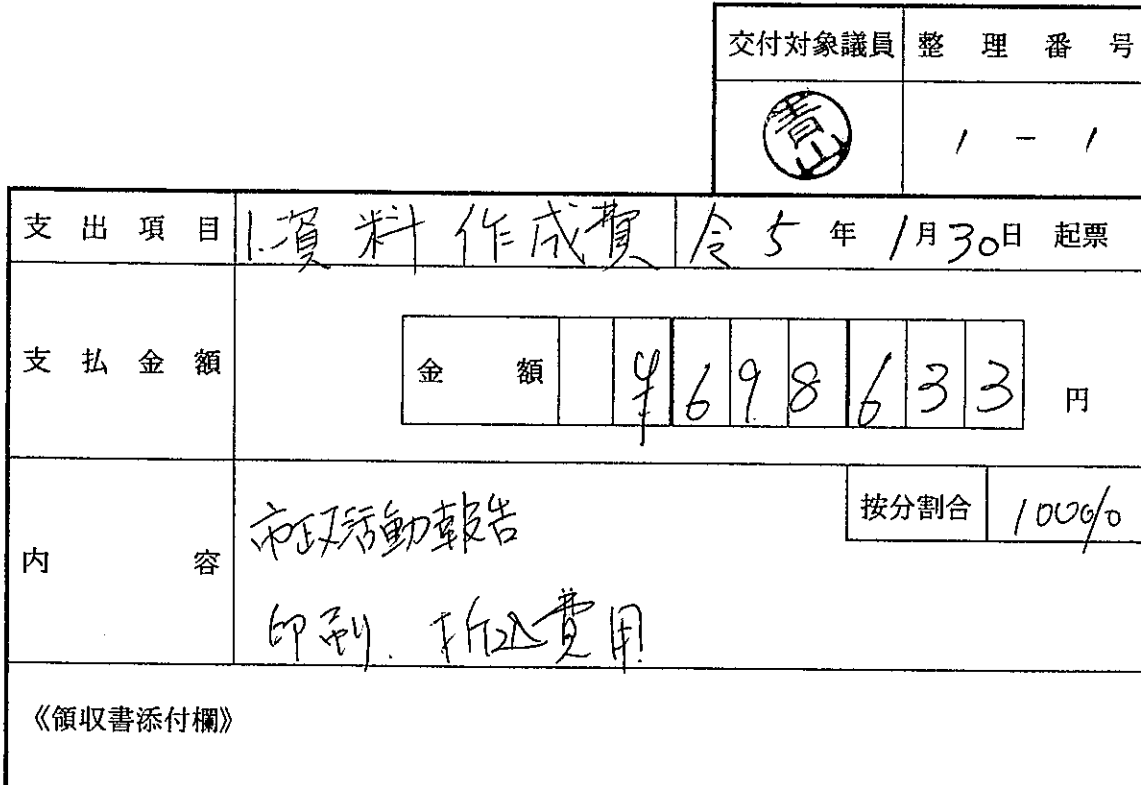 交付対象議員 整理番号
青山 1-1
支出項目 1.資料作成費 令5年1月30日 起票
支払金額 金額 ¥698633円
内容 市政活動報告 按分割合 100%
印刷.折込費用
《領収書添付欄》